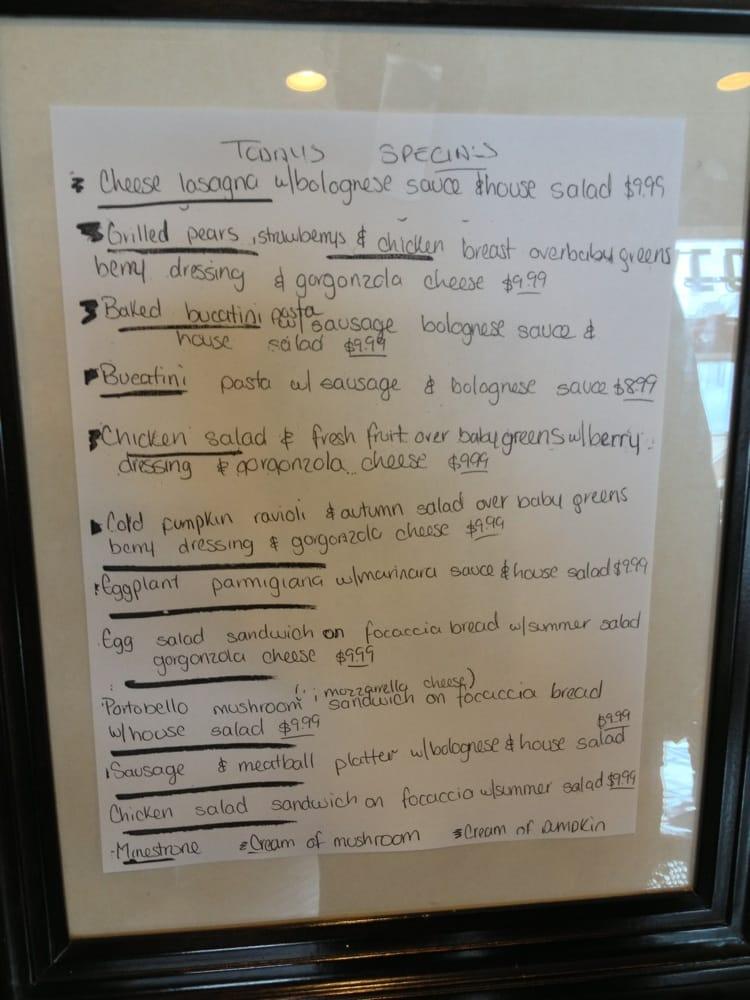 TODAYS SPECIALS
Cheese lasagna w/bolognese sauce & house salad $9.99
Grilled pears, strawberrys & chicken breast over baby greens
berry dressing & gorgonzola cheese $9.99
Baked bucatini pasta w/ sausage bolognese sauce &
house salad $9.99
Bucatini pasta w/ sausage & bolognese sauce $8.99
Chicken salad & fresh fruit over baby greens w/berry
dressing & gorgonzola cheese $9.99
Cold pumpkin ravioli & autumn salad over baby greens
berry dressing & gorgonzola cheese $9.99
Eggplant parmigiana w/marinara sauce & house salad $9.99
Egg salad sandwich on focaccia bread w/summer salad
gorgonzola cheese $9.99
(mozzarella cheese)
Portobello mushroom sandwich on focaccia bread
w/house salad $9.99
Sausage & meatball platter w/bolognese & house salad $9.99
Chicken salad sandwich on focaccia w/summer salad $9.99
-Minestrone Cream of mushroom Cream of pumpkin